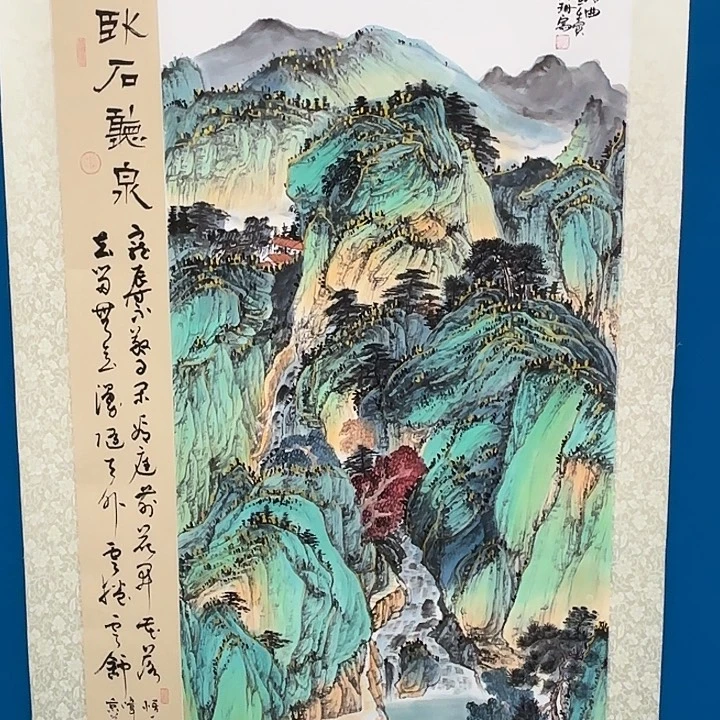 卧石聽泉
寵辱不驚閑看庭前花開花落
去留無意漫隨天外雲捲雲舒